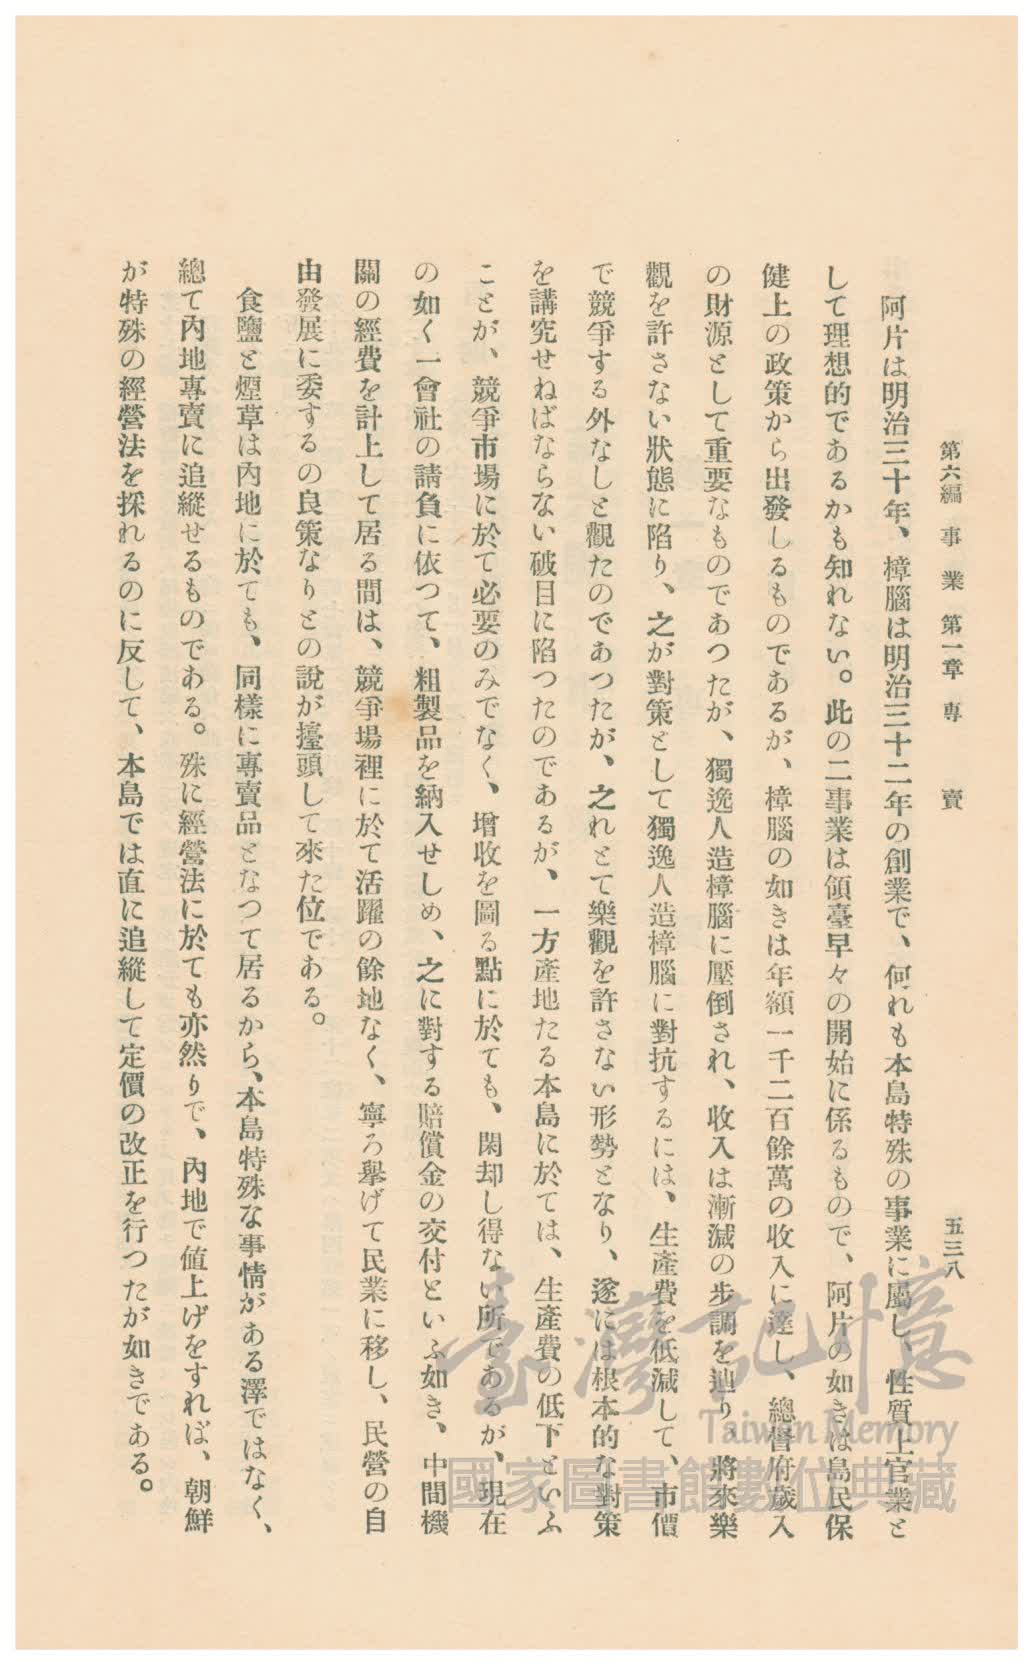 第六編 事業 第一章 專賣 五三八
阿片は明治三十年、樟腦は明治三十二年の創業で、何れも本島特殊の事業に屬し、性質上官業と
して理想的であるかも知れない。此の二事業は領臺早々の開始に係るもので、阿片の如きは島民保
健上の政策から出發しるものであるが、樟腦の如きは年額一千二百餘萬の收入に達し、總督府歲入
の財源として重要なものであつたが、獨逸人造樟腦に壓倒され、收入は漸減の步調を辿り、將來樂
觀を許さない狀態に陷り、之が對策として獨逸人造樟腦に對抗するには、生產費を低減して、市價
で競爭する外なしと觀たのであつたが、之れとて樂觀を許さない形勢となり、遂には根本的な對策
を講究せねばならない破目に陷つたのであるが、一方產地たる本島に於ては、生產費の低下といふ
ことが、競爭市場に於て必要のみでなく、增收を圖る點に於ても、閑却し得ない所であるが、現在
の如く一會社の請負に依つて、粗製品を納入せしめ、之に對する賠償金の交付といふ如き、中間機
關の經費を計上して居る間は、競爭場裡に於て活躍の餘地なく、寧ろ擧げて民業に移し、民營の自
由發展に委するの良策なりとの說が擡頭して來た位である。
食鹽と煙草は內地に於ても、同樣に專賣品となつて居るから、本島特殊な事情がある澤ではなく、
總て內地專賣に追縱せるものである。殊に經營法に於ても亦然りで、內地で値上げをすれば、朝鮮
が特殊の經營法を採れるのに反して、本島では直に追縱して定價の改正を行つたが如きである。
臺灣記憶
Taiwan Memory
國家圖書館數位典藏